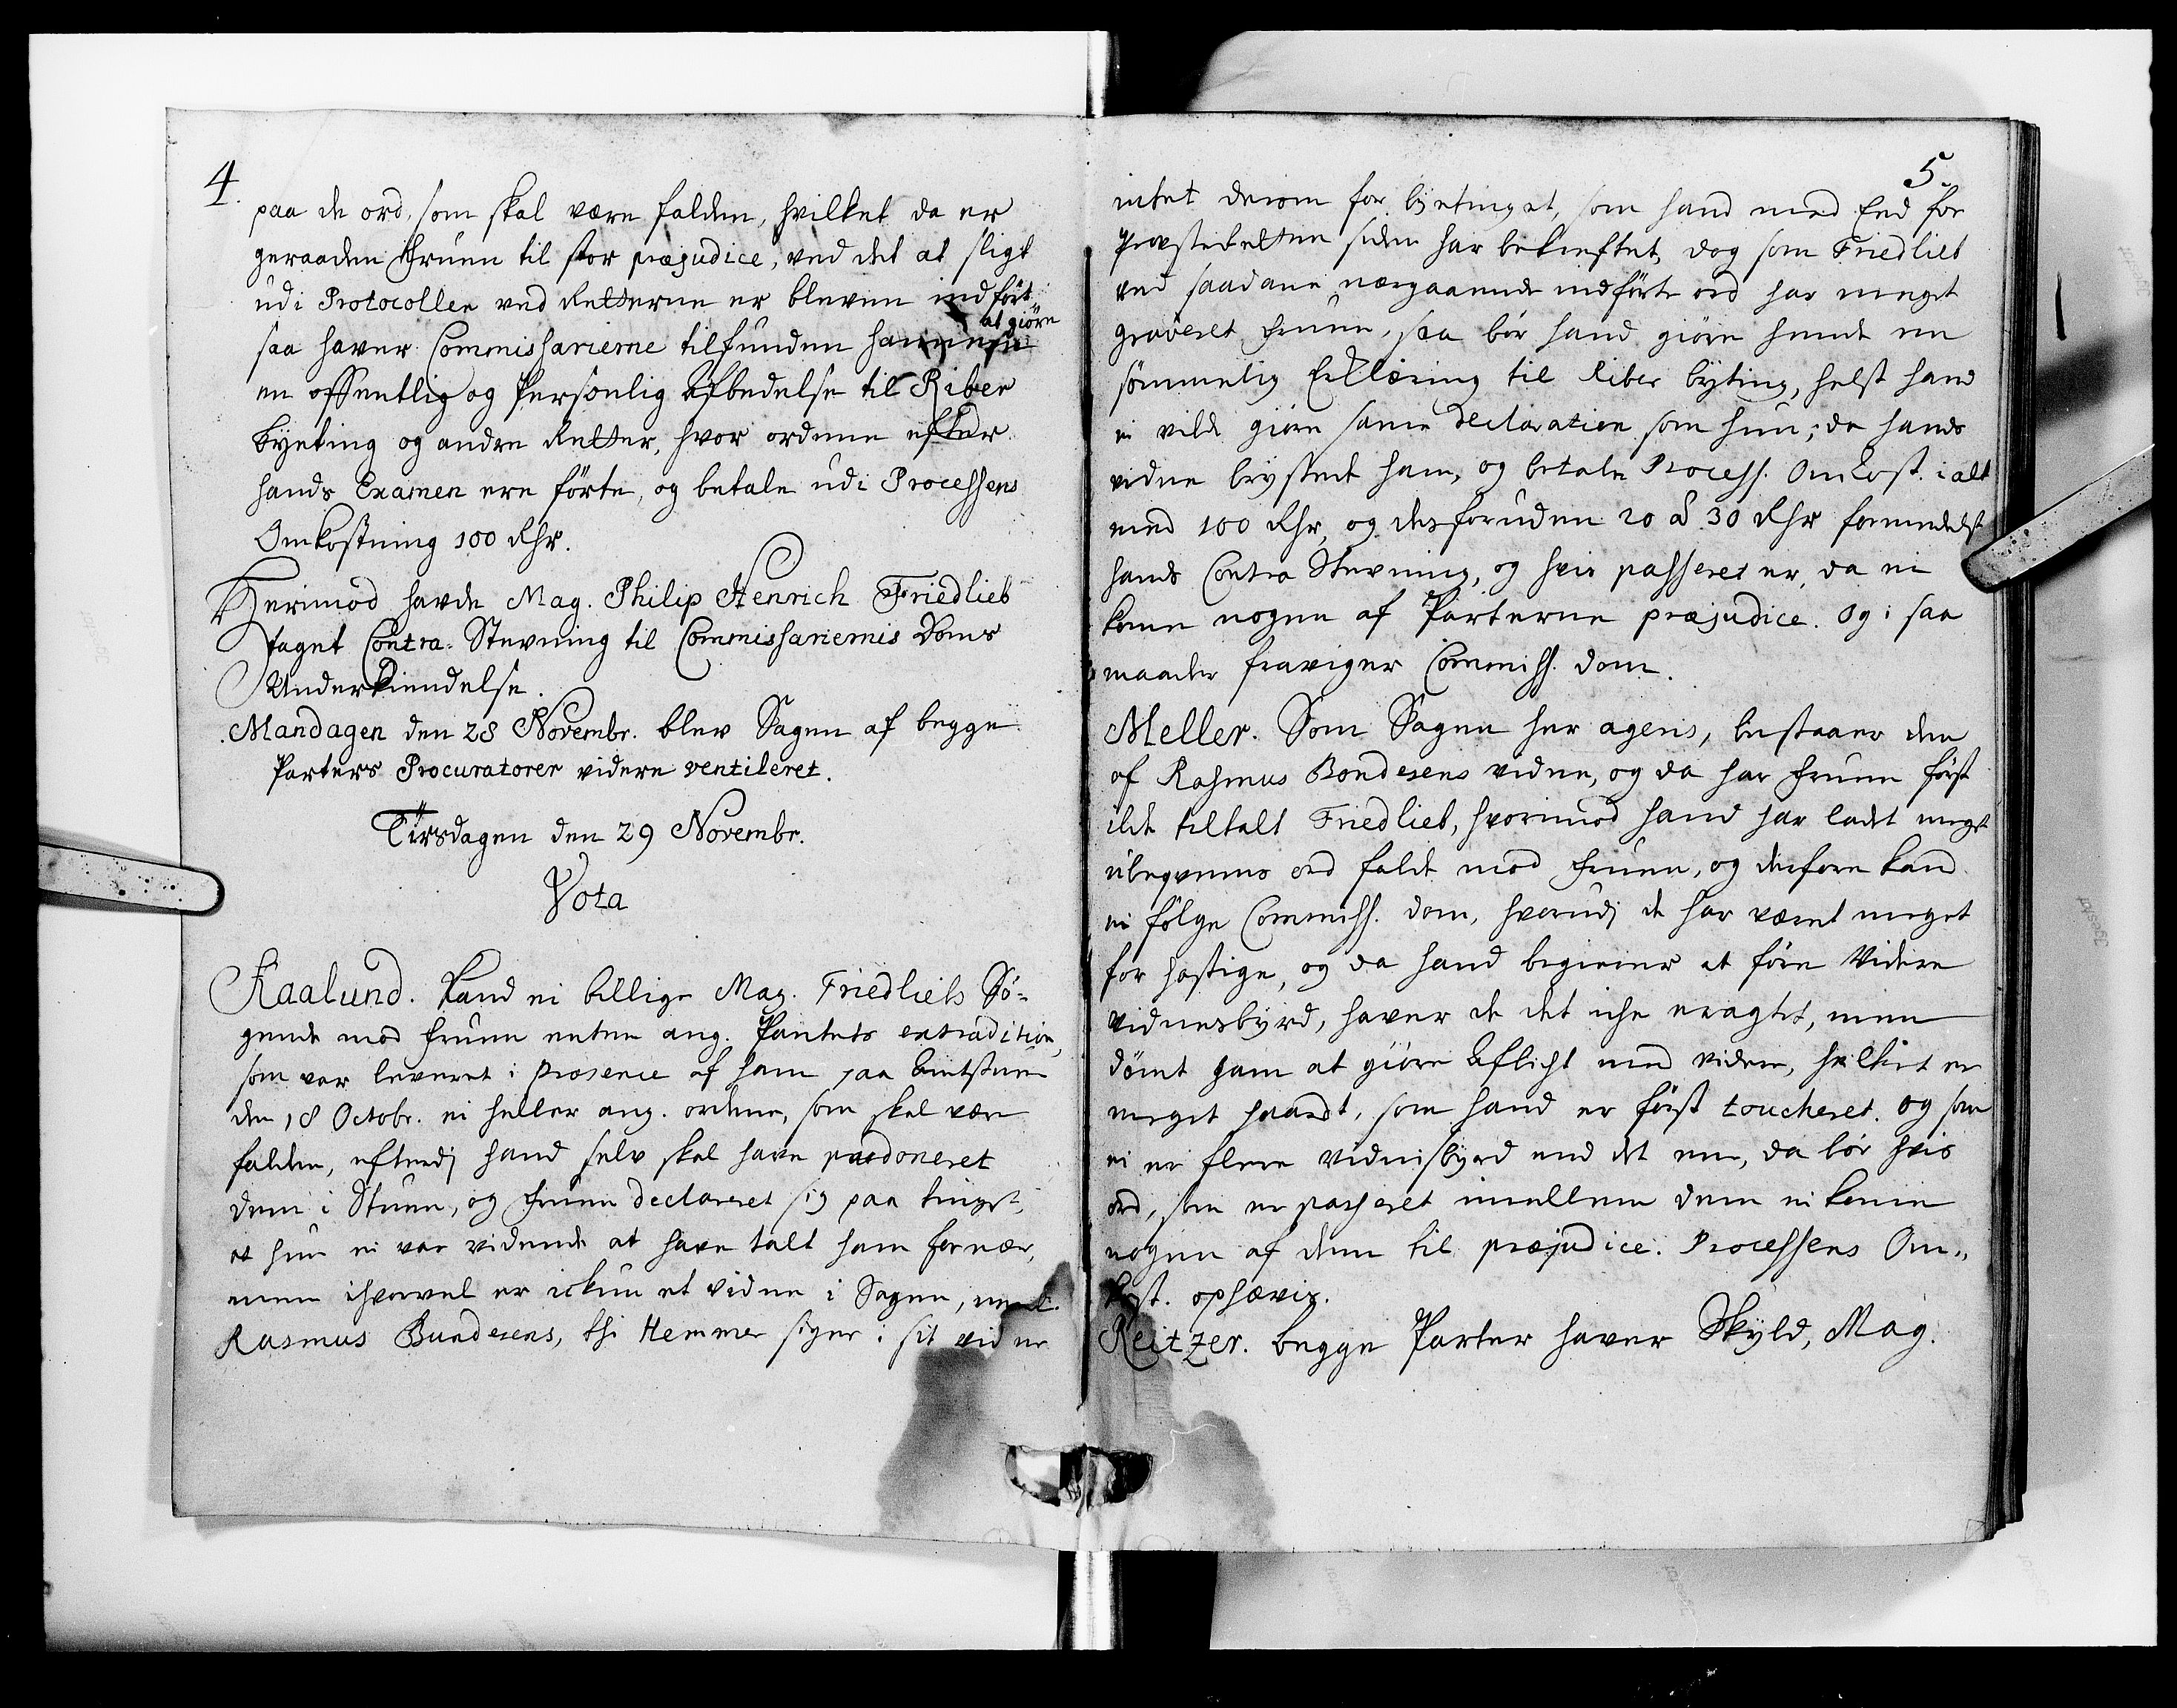 4.
paa de ord, som skal være falden, hvilket da er
geraaden Fruen til stor præjudice, ved det at sligt
udi Protocollen ved Retterne er bleven indført,
saa haver Commissarierne tilfunden hannem
at giøre
en offentlig og Personlig Afbedelse til Riber
byeting og andre Retter, hvor ordene efter
hands Examen ere førte, og betale udi Processens
Omkostning 100 Rdr.
Herimod havde Mag. Philip Henrich Friedlieb
taget Contra-Stevning til Commissariernis Doms
Underkiendelse.
Mandagen den 28 Novembr. blev Sagen af begge
Parters Procuratorer videre ventileret.
Tirsdagen den 29 Novembr.
Vota
Kaalund. Kand ei billige Mag. Friedliebs Sø-
gende mod Fruen enten ang. Pantets extradition,
som var leveret i Prosence af ham paa Amtstuen
den 18 Octobr. ei heller ang. ordene, som skal være
falden, efterdj hand selv skal have pardoneret
dem i Stuen, og Fruen declareret sig paa tinget,
at hun ei var vidende at have talt ham fornær,
men ihvorvel er ickun et vidne i Sagen, neml.
Rasmus Bundesens, thi Hemmer siger i sit vidne
5.
intet derom for byetinget, som hand med Eed for
Provsteretten siden har bekreftet, dog som Friedlieb
ved saadane nærgaaende indførte ord har meget
graveret Fruen, saa bør hand giøre hende en
sømmelig Erklæring til Riber byting, helst hand
ei vilde giøre samme declaration som hun; da hands
vidne brystede ham, og betale Process. Omkost. i alt
med 100 Rdr, og desforuden 20 a 30 Rdr formedelst
hands Contra Stevning, og hvis passeret er, da ei
komme nogen af Parterne præjudice. Og i saa
maader fraviger Commiss. dom.
Meller. Som Sagen her ageris, bestaaer den
af Rasmus Bondesens vidne, og da har Fruen først
ilde tiltalt Friedlieb, hvorimod hand har ladt meget
ubeqvemme ord faldt mod Fruen, og derfore kand
ei følge Commiss. dom, hvorudj de har været meget
for hastige, og da hand begierer at føre Videre
Vidnesbyrd, haver de det iche eragtet, men
dømt ham at giøre Aflicht med videre, hvilket er
meget haardt, som hand er først toucheret. og som
ei er flere vidnisbyrd end det ene, da bør hvis
ord, som er passeret imellem dem ei komme
nogen af dem til præjudice. Processens Om-
kost. ophævis.
Reitzer. begge Parter haver Skyld, Mag.